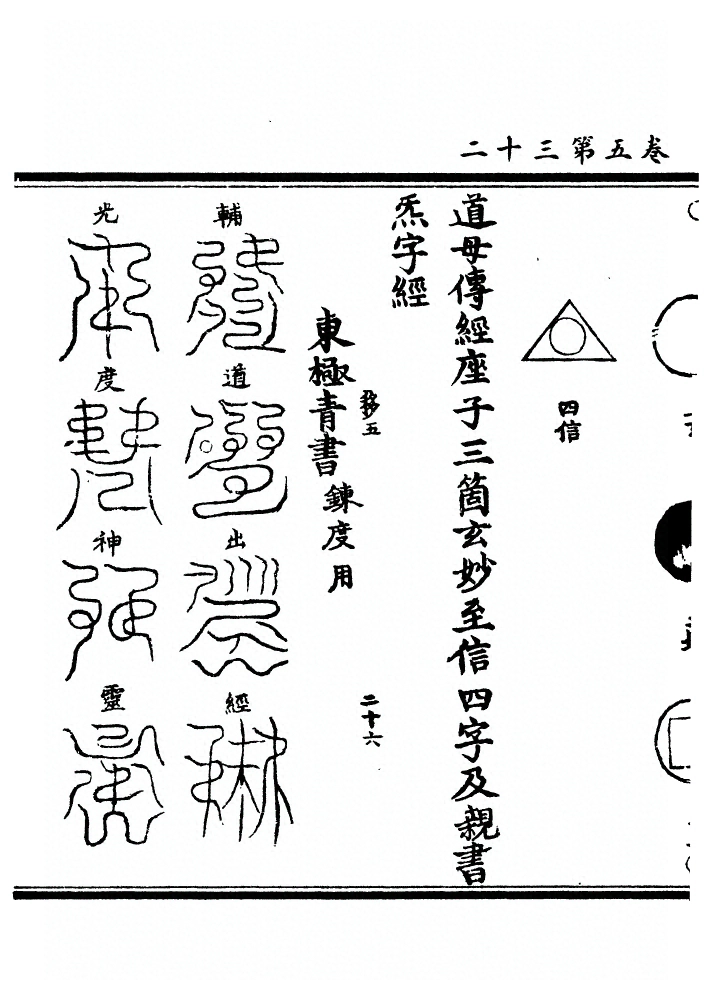 二十三第五卷
四信
道母傳經座子三箇玄妙至信四字及親書
炁字經
東極青書鍊度用
二十六
輔
道
出
經
光
度
神
靈